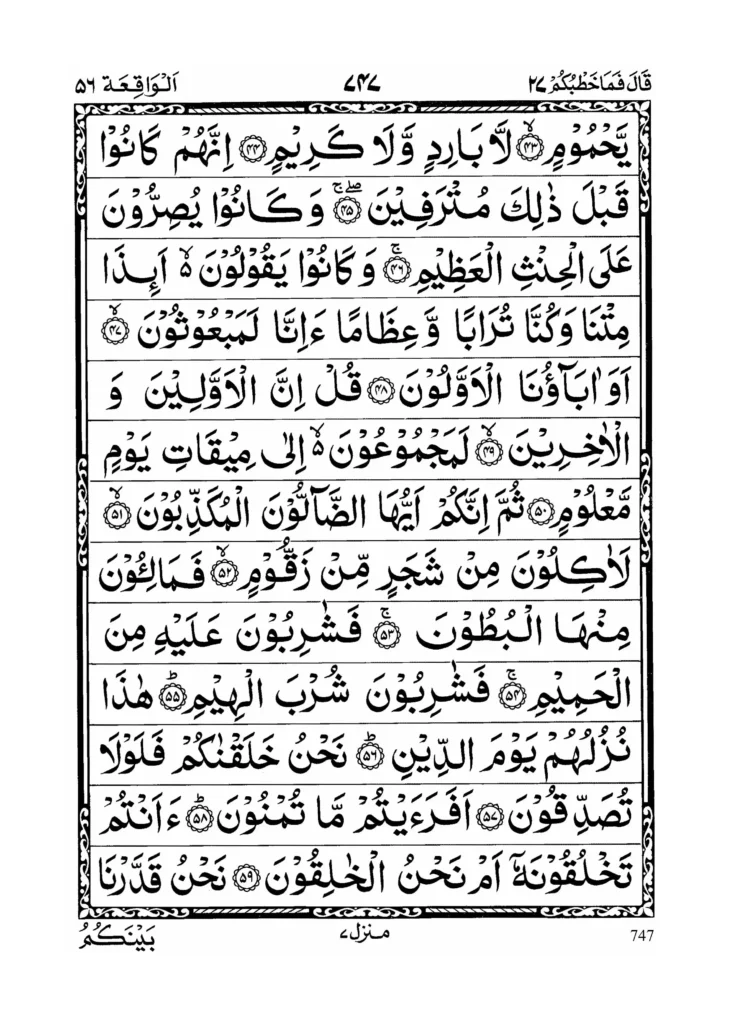 قَالَ فَمَا خَطْبُكُمْ ٢٧ ٧٤٧ اَلْوَاقِعَة ٥٦
يَّحْمُوْمٍ ۙ﴿٤٣﴾ لَّا بَارِدٍ وَّلَا كَرِيْمٍ ﴿٤٤﴾ اِنَّهُمْ كَانُوْا
قَبْلَ ذٰلِكَ مُتْرَفِيْنَ ۖۚ﴿٤٥﴾ وَ كَانُوْا يُصِرُّوْنَ
عَلَى الْحِنْثِ الْعَظِيْمِ ۚ﴿٤٦﴾ وَ كَانُوْا يَقُوْلُوْنَ ۙ۬ اَىِٕذَا
مِتْنَا وَ كُنَّا تُرَابًا وَّ عِظَامًا ءَاِنَّا لَمَبْعُوْثُوْنَ ۙ﴿٤٧﴾
اَوَ اٰبَآؤُنَا الْاَوَّلُوْنَ ﴿٤٨﴾ قُلْ اِنَّ الْاَوَّلِيْنَ وَ
الْاٰخِرِيْنَ ۙ﴿٤٩﴾ لَمَجْمُوْعُوْنَ ۙ۬ اِلٰى مِيْقَاتِ يَوْمٍ
مَّعْلُوْمٍ ﴿٥٠﴾ ثُمَّ اِنَّكُمْ اَيُّهَا الضَّآلُّوْنَ الْمُكَذِّبُوْنَ ۙ﴿٥١﴾
لَاٰكِلُوْنَ مِنْ شَجَرٍ مِّنْ زَقُّوْمٍ ۙ﴿٥٢﴾ فَمَالِـُٔوْنَ
مِنْهَا الْبُطُوْنَ ۚ﴿٥٣﴾ فَشٰرِبُوْنَ عَلَيْهِ مِنَ
الْحَمِيْمِ ۚ﴿٥٤﴾ فَشٰرِبُوْنَ شُرْبَ الْهِيْمِ ؕ﴿٥٥﴾ هٰذَا
نُزُلُهُمْ يَوْمَ الدِّيْنِ ؕ﴿٥٦﴾ نَحْنُ خَلَقْنٰكُمْ فَلَوْلَا
تُصَدِّقُوْنَ ﴿٥٧﴾ اَفَرَءَيْتُمْ مَّا تُمْنُوْنَ ؕ﴿٥٨﴾ ءَاَنْتُمْ
تَخْلُقُوْنَهٗۤ اَمْ نَحْنُ الْخٰلِقُوْنَ ﴿٥٩﴾ نَحْنُ قَدَّرْنَا
بَيْنَكُمُ منزل٧ 747